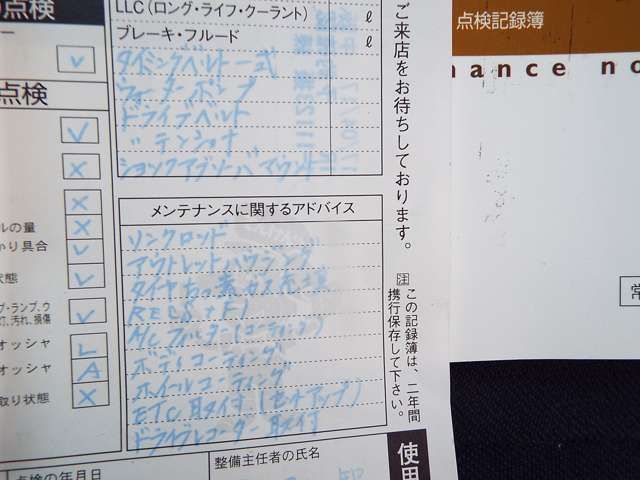 点検
点検
ルの量
かり具合
状態
プ・ランプ、ウ
灯、汚れ、損傷
オッシャ
オッシャ
取り状態
LLC(ロング・ライフ・クーラント) ℓ
ブレーキ・フルード ℓ
タイミングベルト一式
ウォーターポンプ
ドライブベルト
〃 テンショナ
ショックアブソーバマウント
メンテナンスに関するアドバイス
リンクロッド
アウトレットハウジング
タイヤちっ素ガス充填
RECS+F1
A/Cフィルター(コーティング)
ボディコーティング
ホイールコーティング
ETC取付(セットアップ)
ドライブレコーダー取付
点検の年月日
整備主任者の氏名
ご来店をお待ちしております。
注 この記録簿は、二年間
携行保存して下さい。
使用
点検記録簿
nance no